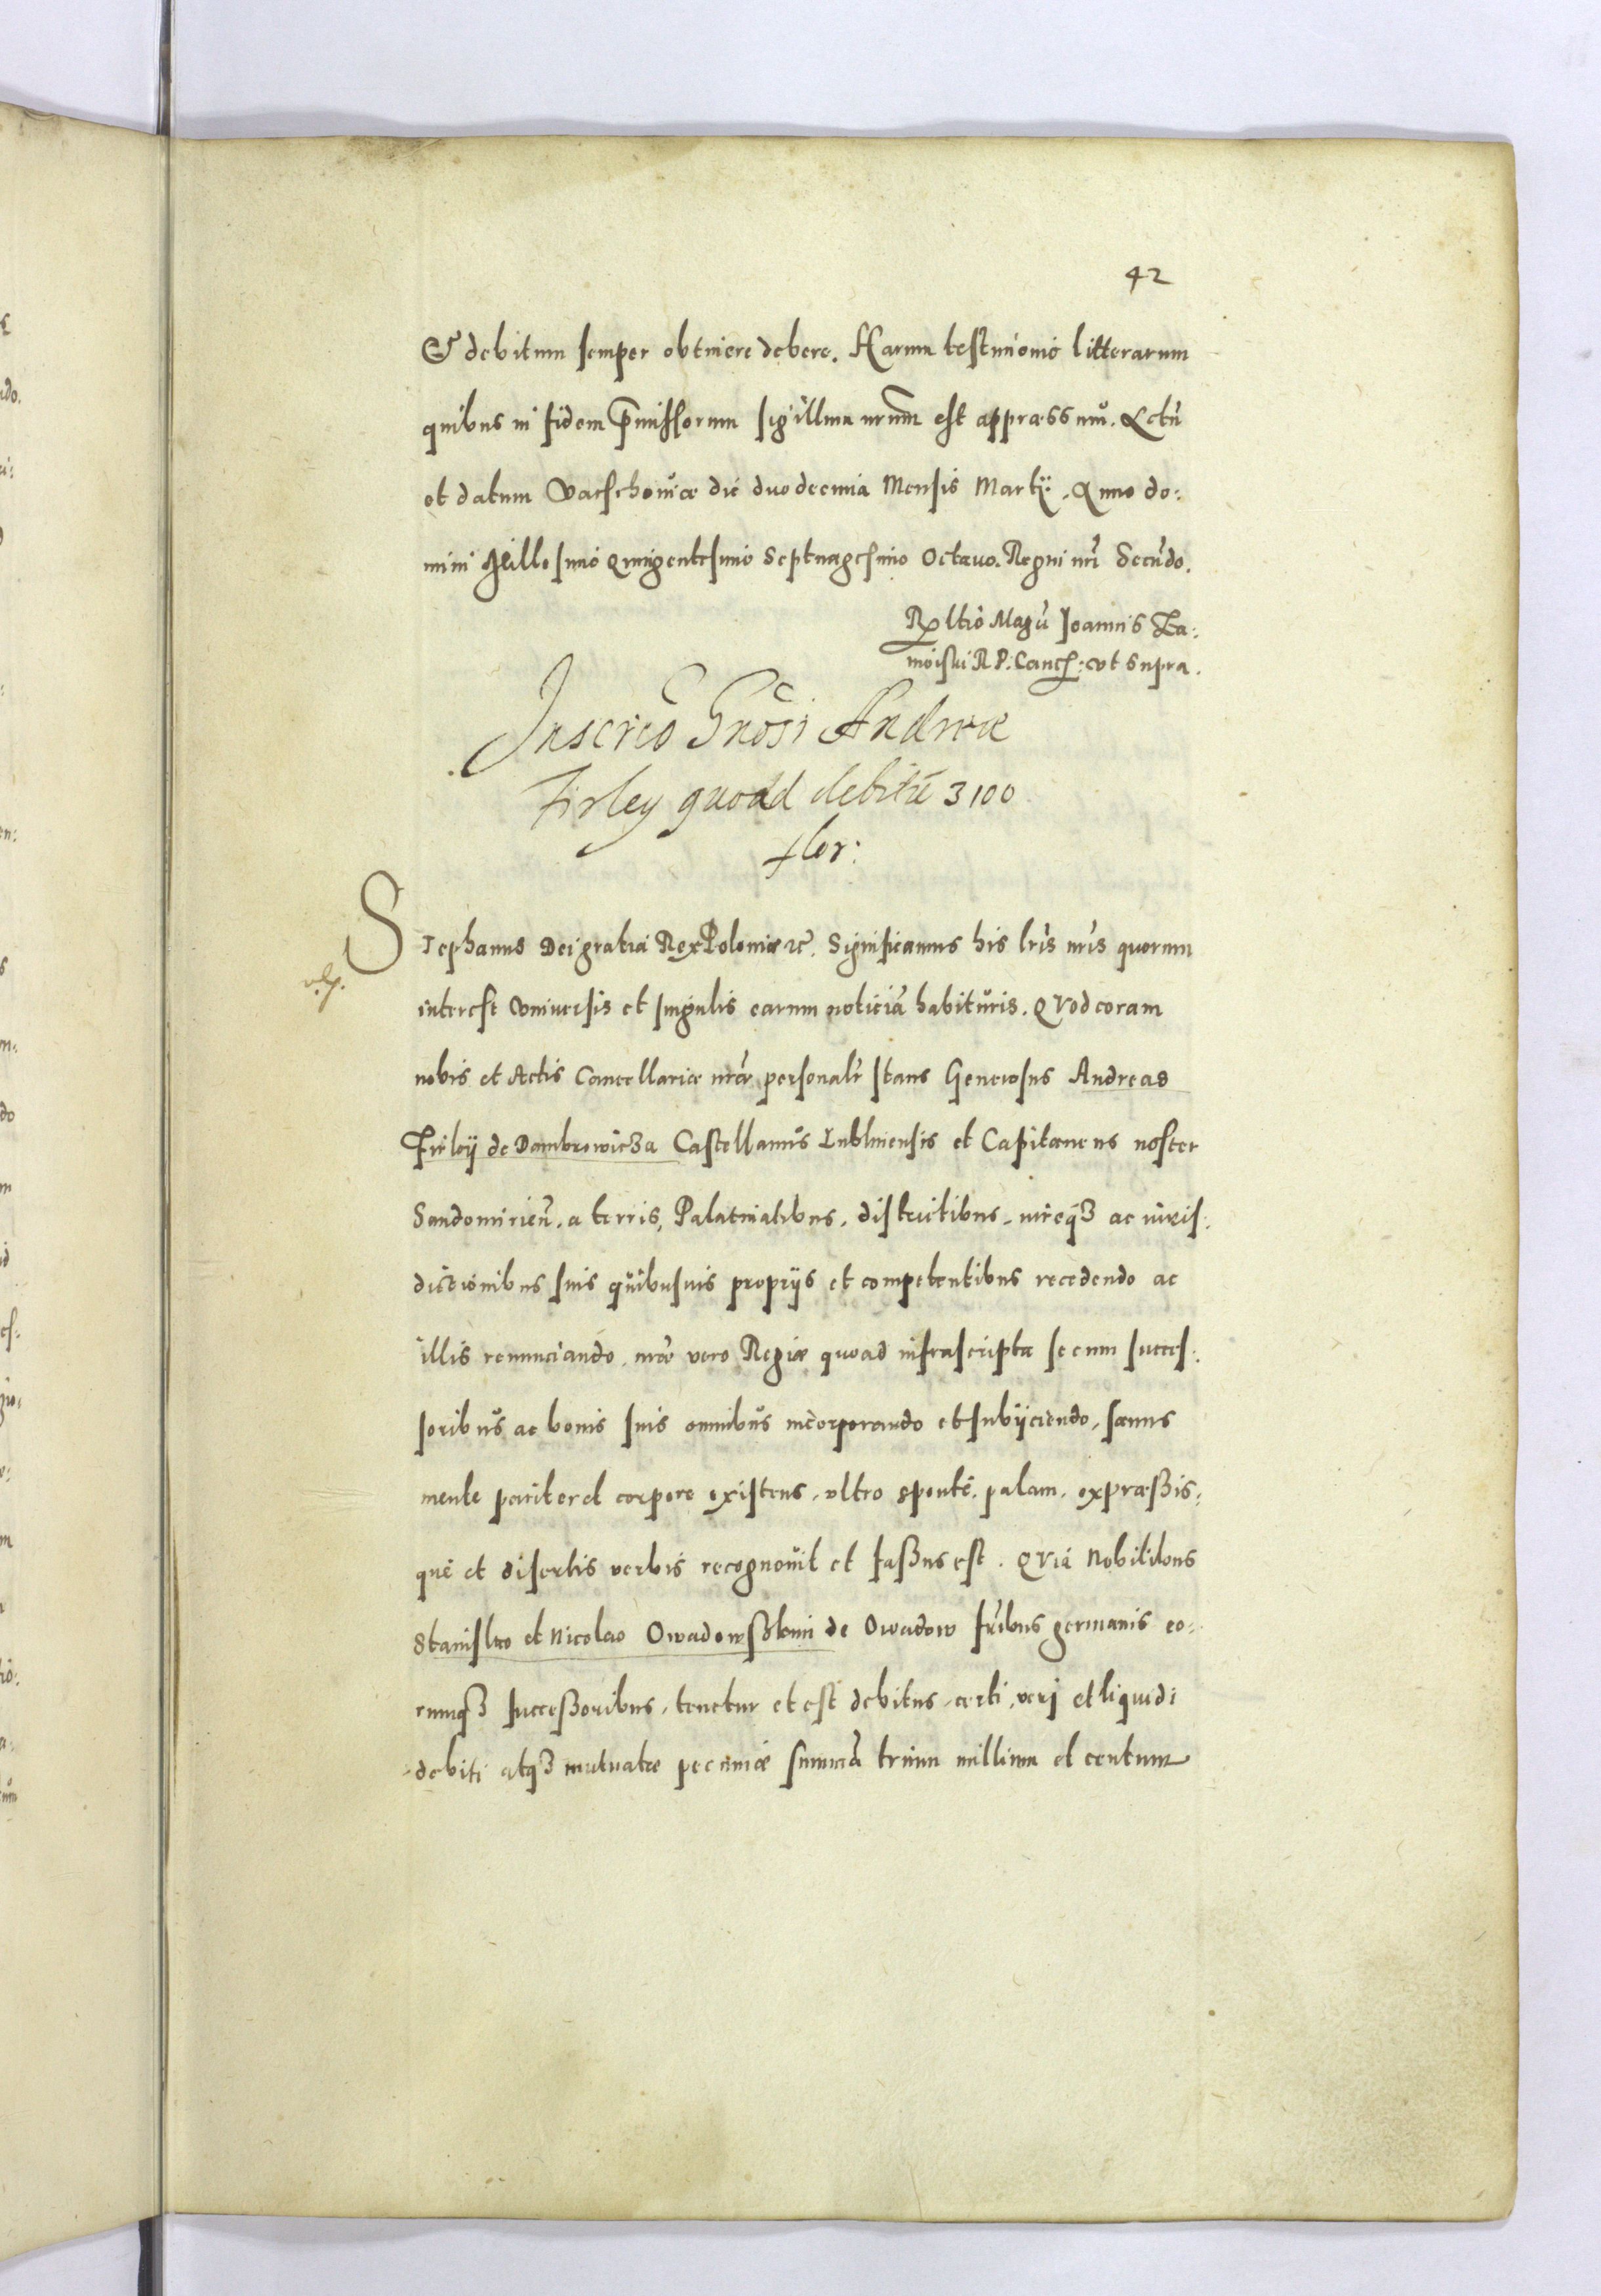 42
Et debitum semper obtinere debere. Harum testimonio litterarum
quibus in fidem p̄missorum sigillum nr̄um est appraessum̄. Actū
et datum Varschoviae die duodecima Mensis Martij. Anno do:
mini Millesimo Quingentesimo Septuagesimo Octavo. Regni nr̄i Secūdo.
Rltio Magci Joannis Za:
moiski R. P. Canc: ut supra.
Inscrīo Gnōsi Andreae
Firley quoad debitū 3100
flor:
Stephanus Dei gratia Rex Poloniae etc. Significamus his lrīs nrīs quorum
interest Vniversis et singulis earum noticiā habituris. Quod coram
nobis et Actis Cancellariae nrāe personalr̄ stans Generosus Andreas
Firleij de Dambrowicza Castellanus Lublinensis et Capitaneus noster
Sandomirien̄. a terris, Palatinatibus, districtibus, iureq3 ac iuris:
dictionibus suis quibusuis proprijs et competentibus recedendo ac
illis renunciando, nrāe vero Regiae quoad infrascripta se cum succes:
soribus ac bonis suis omnibus incorporando et subijciendo, sanus
mente pariter et corpore existens, ultro sponte, palam, expraeßis:
que et disertis verbis recognovit et faßus est. Quia Nobilibus
Stanislao et Nicolao Owadowßkim de Owadow frībus germanis eo:
rumq3 succeßoribus, tenetur et est debitus, certi, veri et liquidi
debiti atq3 mutuatae pecuniae summā trium millium et centum